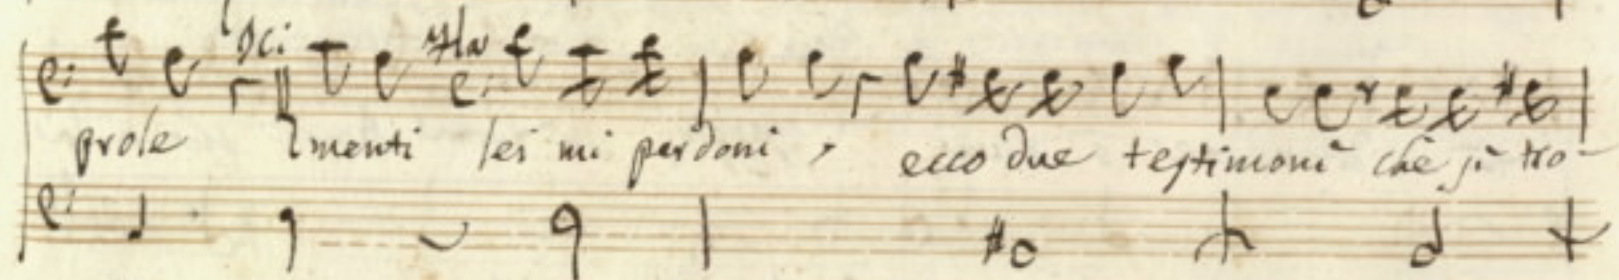 prole menti lei mi perdoni, ecco due testimoni che si tro-